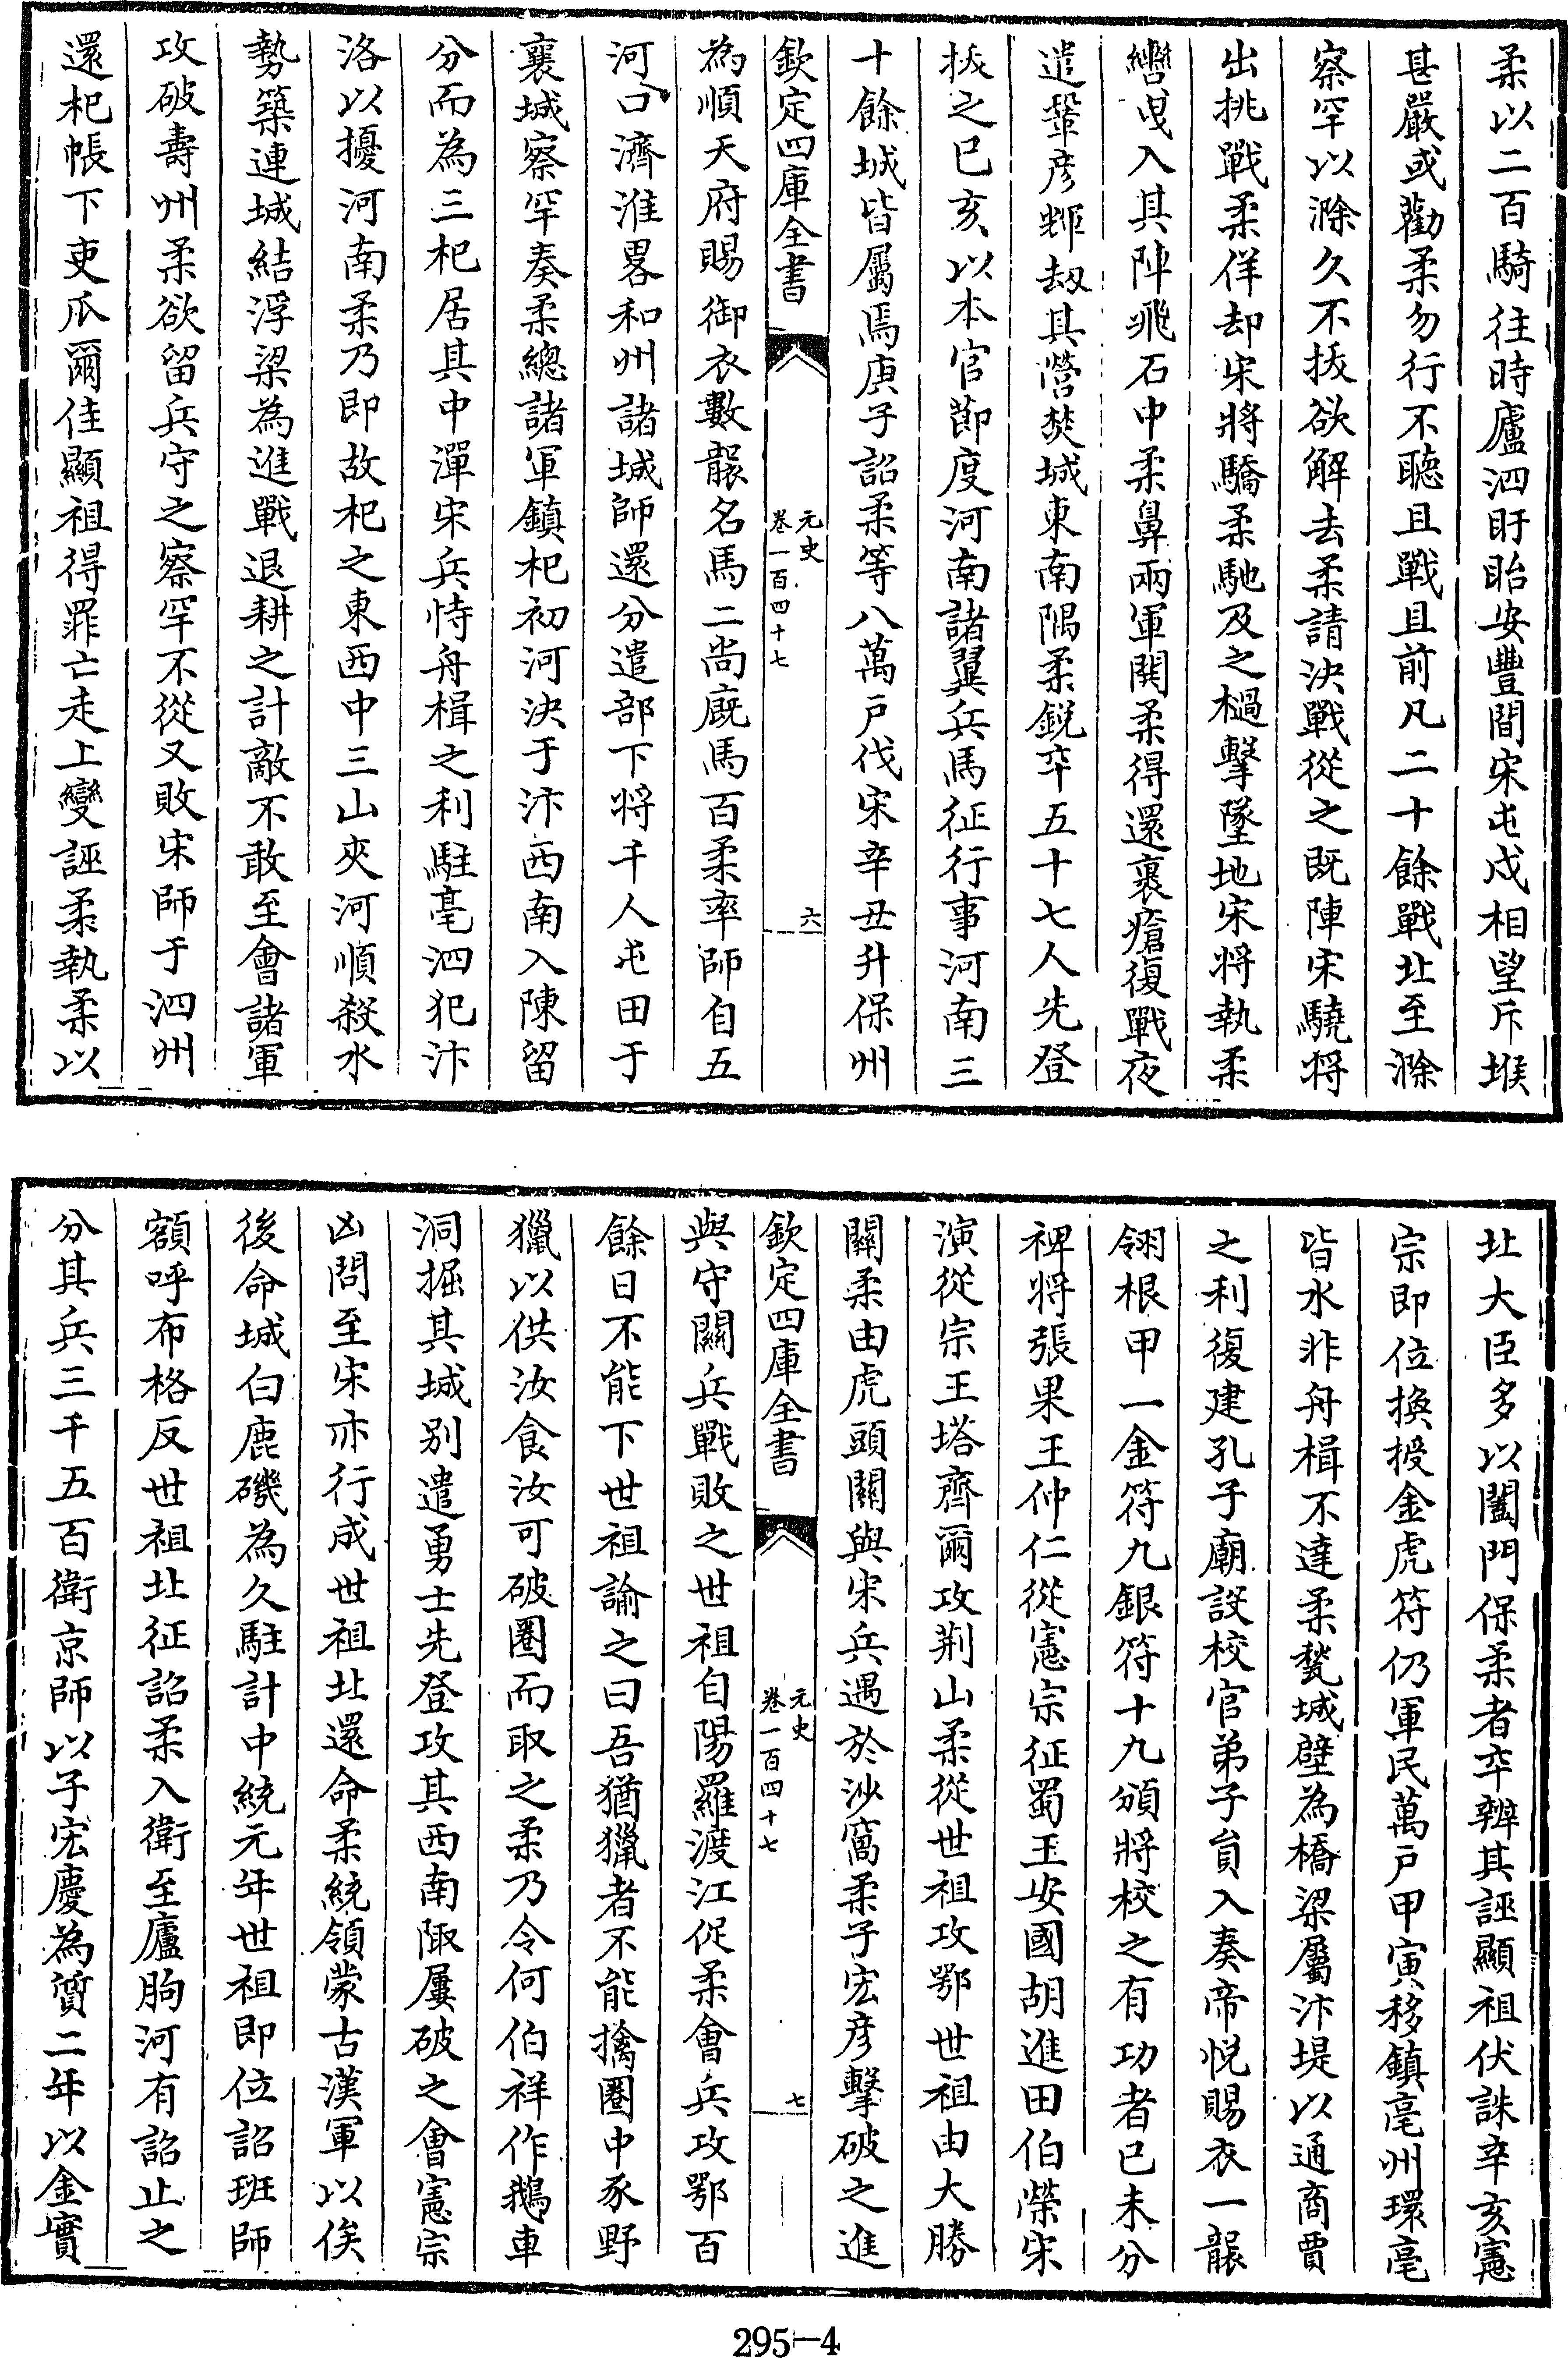 柔以二百騎往時廬泗盱眙安豐間宋屯戍相望斥堠
甚嚴或勸柔勿行不聽且戰且前凡二十餘戰北至滁
察罕以滁久不拔欲解去柔請決戰從之既陣宋驍將
出挑戰柔佯却宋將驕柔馳及之檛擊墜地宋將執柔
轡曵入其陣飛石中柔鼻兩軍鬨柔得還裹瘡復戰夜
遣鞏彥輝刼其營焚城東南隅柔銳卒五十七人先登
拔之已亥以本官節度河南諸翼兵馬征行事河南三
十餘城皆屬焉庚子詔柔等八萬户伐宋辛丑升保州
欽定四庫全書
元史
卷一百四十七
六
為順天府賜御衣數襲名馬二尚廐馬百柔率師自五
河口濟淮畧和州諸城師還分遣部下將千人屯田于
襄城察罕奏柔總諸軍鎮杞初河決于汴西南入陳留
分而為三杞居其中潬宋兵恃舟楫之利駐亳泗犯汴
洛以擾河南柔乃即故杞之東西中三山夾河順殺水
勢築連城結浮梁為進戰退耕之計敵不敢至會諸軍
攻破壽州柔欲留兵守之察罕不從又敗宋師于泗州
還杞帳下吏瓜爾佳顯祖得罪亡走上變誣柔執柔以
北大臣多以闔門保柔者卒辨其誣顯祖伏誅辛亥憲
宗即位換授金虎符仍軍民萬户甲寅移鎮亳州環亳
皆水非舟楫不達柔甃城壁為橋梁屬汴堤以通商賈
之利復建孔子廟設校官弟子員入奏帝悦賜衣一襲
翎根甲一金符九銀符十九頒將校之有功者已未分
裨將張果王仲仁從憲宗征蜀王安國胡進田伯榮宋
演從宗王塔齊爾攻荆山柔從世祖攻鄂世祖由大勝
關柔由虎頭關與宋兵遇於沙窩柔子宏彥擊破之進
欽定四庫全書
元史
卷一百四十七
七
與守關兵戰敗之世祖自陽羅渡江促柔會兵攻鄂百
餘日不能下世祖諭之曰吾猶獵者不能擒圈中豕野
獵以供汝食汝可破圈而取之柔乃令何伯祥作鵝車
洞掘其城别遣勇士先登攻其西南陬屢破之會憲宗
凶問至宋亦行成世祖北還命柔統領蒙古漢軍以俟
後命城白鹿磯為久駐計中統元年世祖即位詔班師
額呼布格反世祖北征詔柔入衛至廬朐河有詔止之
分其兵三千五百衛京師以子宏慶為質二年以金實
295-4